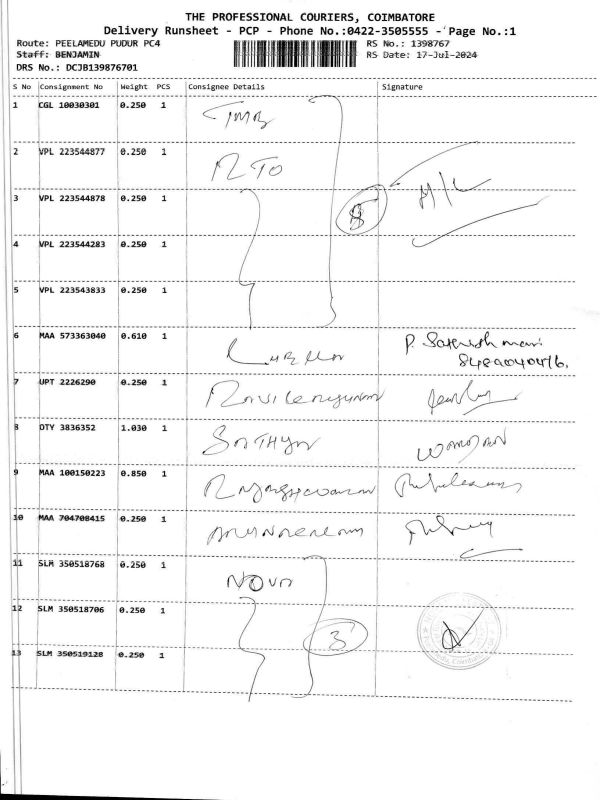 THE PROFESSIONAL COURIERS, COIMBATORE
Delivery Runsheet - PCP - Phone No.:0422-3505555 - Page No.:1
Route: PEELAMEDU PUDUR PC4 RS No.: 1398767
Staff: BENJAMIN RS Date: 17-Jul-2024
DRS No.: DCJB139876701
S No Consignment No Weight PCS Consignee Details Signature
1 CGL 10030301 0.250 1 TMB
2 VPL 223544877 0.250 1 RTO
3 VPL 223544878 0.250 1 8
4 VPL 223544283 0.250 1
5 VPL 223543833 0.250 1
6 MAA 573363040 0.610 1
7 UPT 2226290 0.250 1
8 DTY 3836352 1.030 1 SATHYA
9 MAA 100150223 0.850 1
10 MAA 704708415 0.250 1
11 SLM 350518768 0.250 1 NOVA
12 SLM 350518706 0.250 1 3
13 SLM 350519128 0.250 1